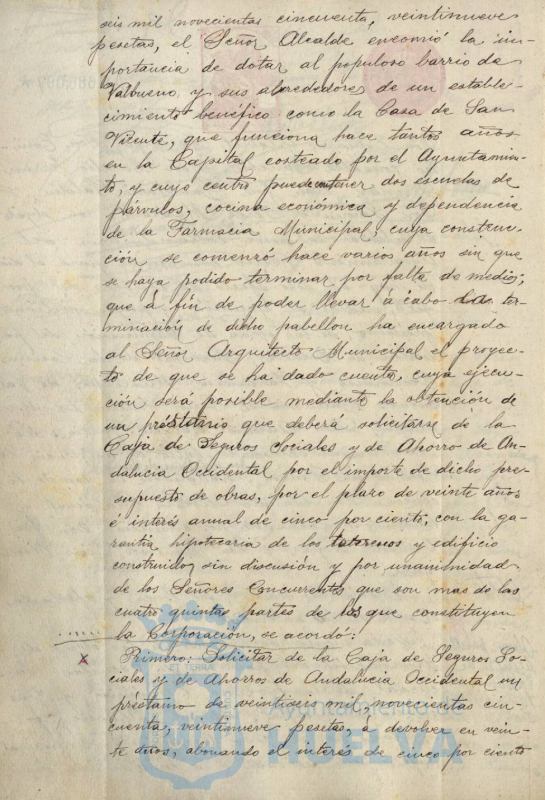 seis mil novecientas cincuenta, veintinueve
pesetas, el Señor Alcalde encomió la im-
portancia de dotar al populoso barrio de
Valbueno y sus alrededores de un estable-
cimiento benéfico como la Casa de San
Vicente, que funciona hace tantos años
en la Capital costeado por el Ayuntamien-
to, y cuyo centro puede contener dos escuelas de
párvulos, cocina económica y dependencia
de la Farmacia Municipal, cuya construc-
ción se comenzó hace varios años sin que
se haya podido terminar por falta de medios;
que á fin de poder llevar á cabo la ter-
minación de dicho pabellon ha encargado
al Señor Arquitecto Municipal el proyec-
to de que se ha dado cuenta, cuya ejecu-
ción será posible mediante la obtención de
un préstamo que deberá solicitarse de la
Caja de Seguros Sociales y de Ahorro de An-
dalucia Occidental por el importe de dicho pre-
supuesto de obras, por el plazo de veinte años
é interés anual de cinco por ciento, con la ga-
rantia hipotecaria de los terrenos y edificio
construido, sin discusión y por unanimidad
de los Señores Concurrentes que son mas de las
cuatro quintas partes de los que constituyen
la Corporación, se acordó:
Primero: Solicitar de la Caja de Seguros So-
ciales y de Ahorros de Andalucia Occidental un
préstamo de veintiseis mil, novecientas cin-
cuenta, veintinueve pesetas, á devolver en vein-
te años, abonando el interés de cinco por ciento